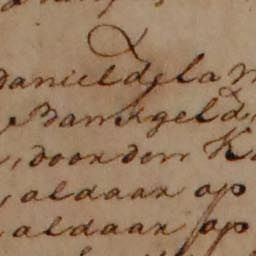 Daniel de la
Bankgeld
, door den
, aldaar op
aldaar op